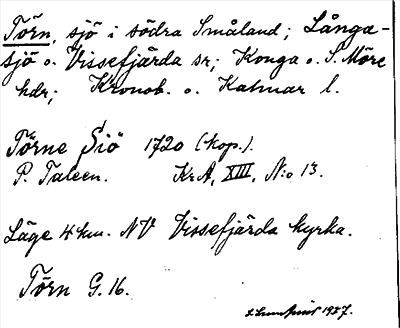 Törn, sjö i södra Småland; Långa-
sjö o. Vissefjärda sr; Konga o. S. Möre
hdr; Kronob. o. Kalmar l.
Törne Siö 1720 (kop.).
P. Taleen. KrA, XIII, N:o 13.
Läge 4 km. NV Vissefjärda kyrka.
Törn G. 16.
1927.